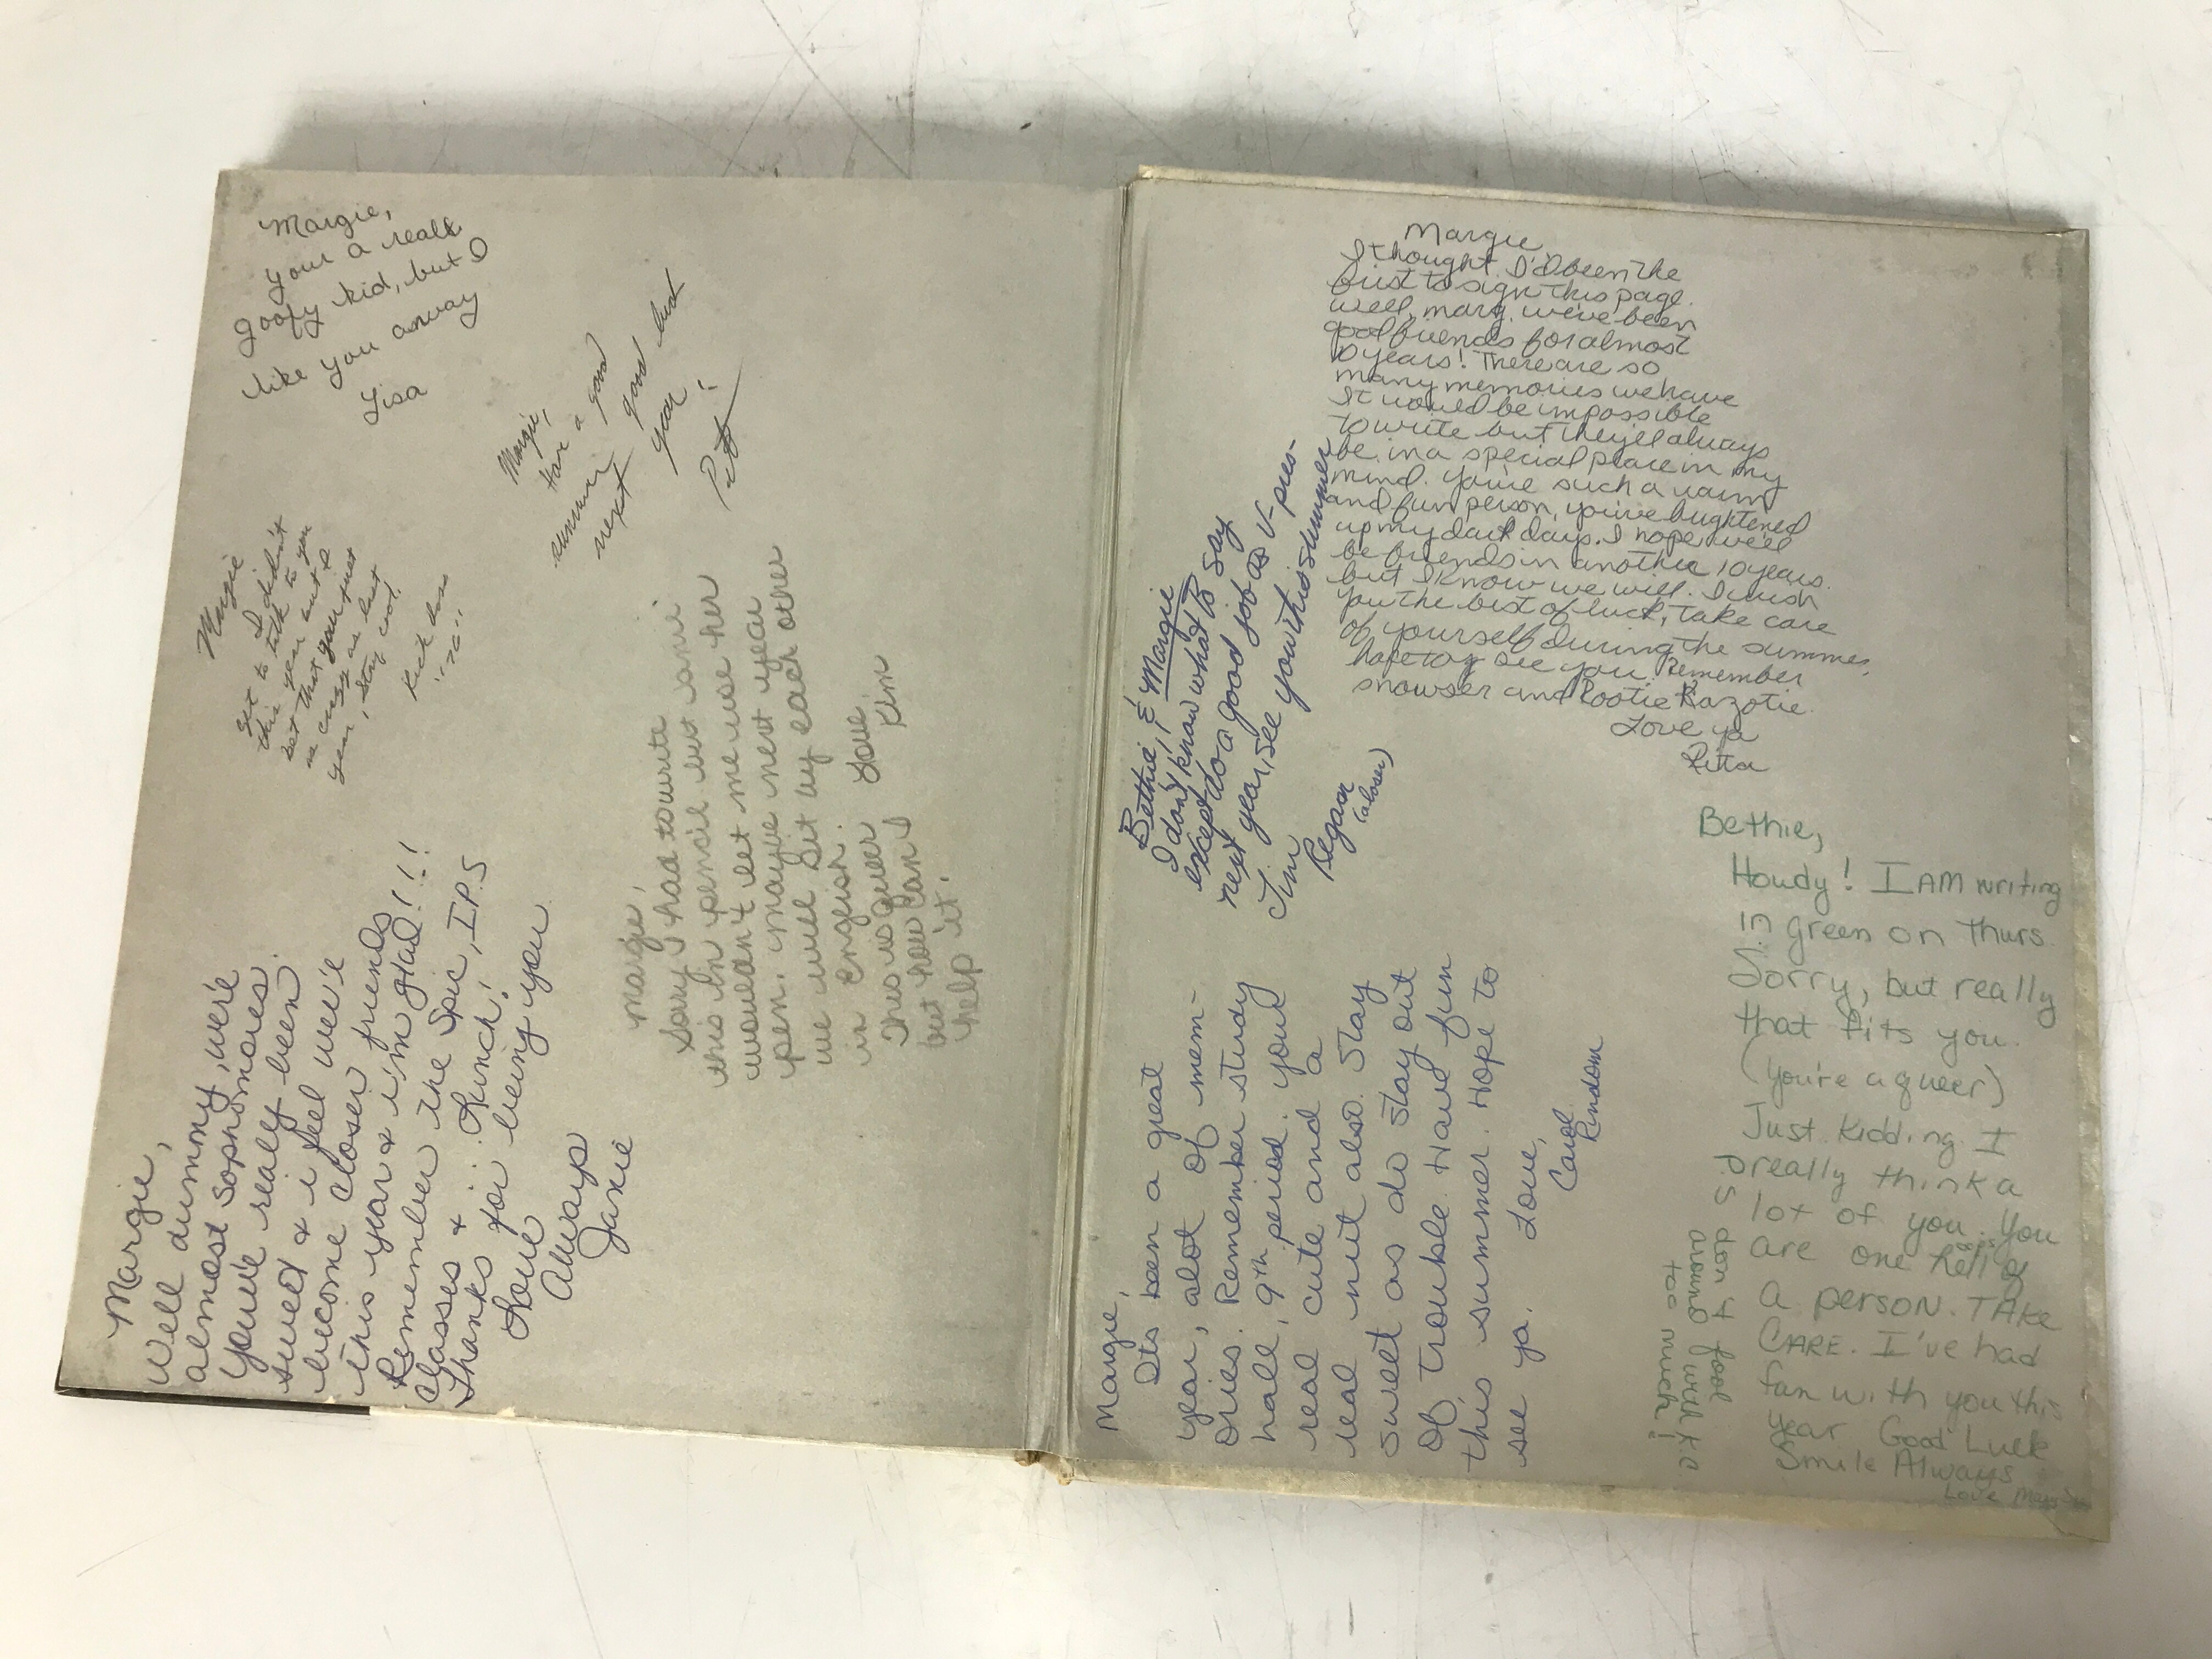 Margie,
your a reall
goofy kid, but I
like you anway
Lisa
Margie,
Have a good
summer good luck
next year!
Margie
I didn't
get to talk to you
this year but I
bet that your just
as crazy as last
year, stay cool.
Margie,
Well dummy, we're
almost sophomores.
You've really been
sweet & i feel we've
become closer friends
this year & i'm glad!!!
Remember the Spic, IPS
classes & Lunch!
Thanks for being you
Love
Always
Janie
Margie,
Sorry I had to write
this in pencil but
wouldn't let me use her
pen. maybe next year
we will sit by each other
in english. Love
This is queer Kim
but how can I
help it.
Margie
I thought I'd been the
first to sign this page.
well, marg, we've been
good friends for almost
10 years! There are so
many memories we have
It would be impossible
to write but they'll always
be in a special place in my
mind. You're such a warm
and fun person, you've brightened
up my dark days. I hope we'll
be friends in another 10 years.
but I know we will. I wish
you the best of luck, take care
of yourself during the summer,
hope to see you. Remember
snowser and Rootie Kazotie.
Love ya
Rita
Bethie, & Margie
I don't know what to say
except do a good job as V-pres-
next year, see you this summer
Jim
Regan
(loser)
Margie,
Its been a great
year, alot of mem-
ories. Remember study
hall, 9th period. your
real cute and a
real nut also. Stay
sweet as do stay out
of trouble. Have fun
this summer. Hope to
see ya. Love,
Carol
Rindom
Bethie,
Howdy! I AM writing
in green on Thurs.
Sorry, but really
that fits you.
(you're a queer)
Just kidding. I
really think a
lot of you. You
are one hell of
a person. TAKE
CARE. I've had
fun with you this
year Good Luck
Smile Always
Love
P.S don't fool
around with
too much!